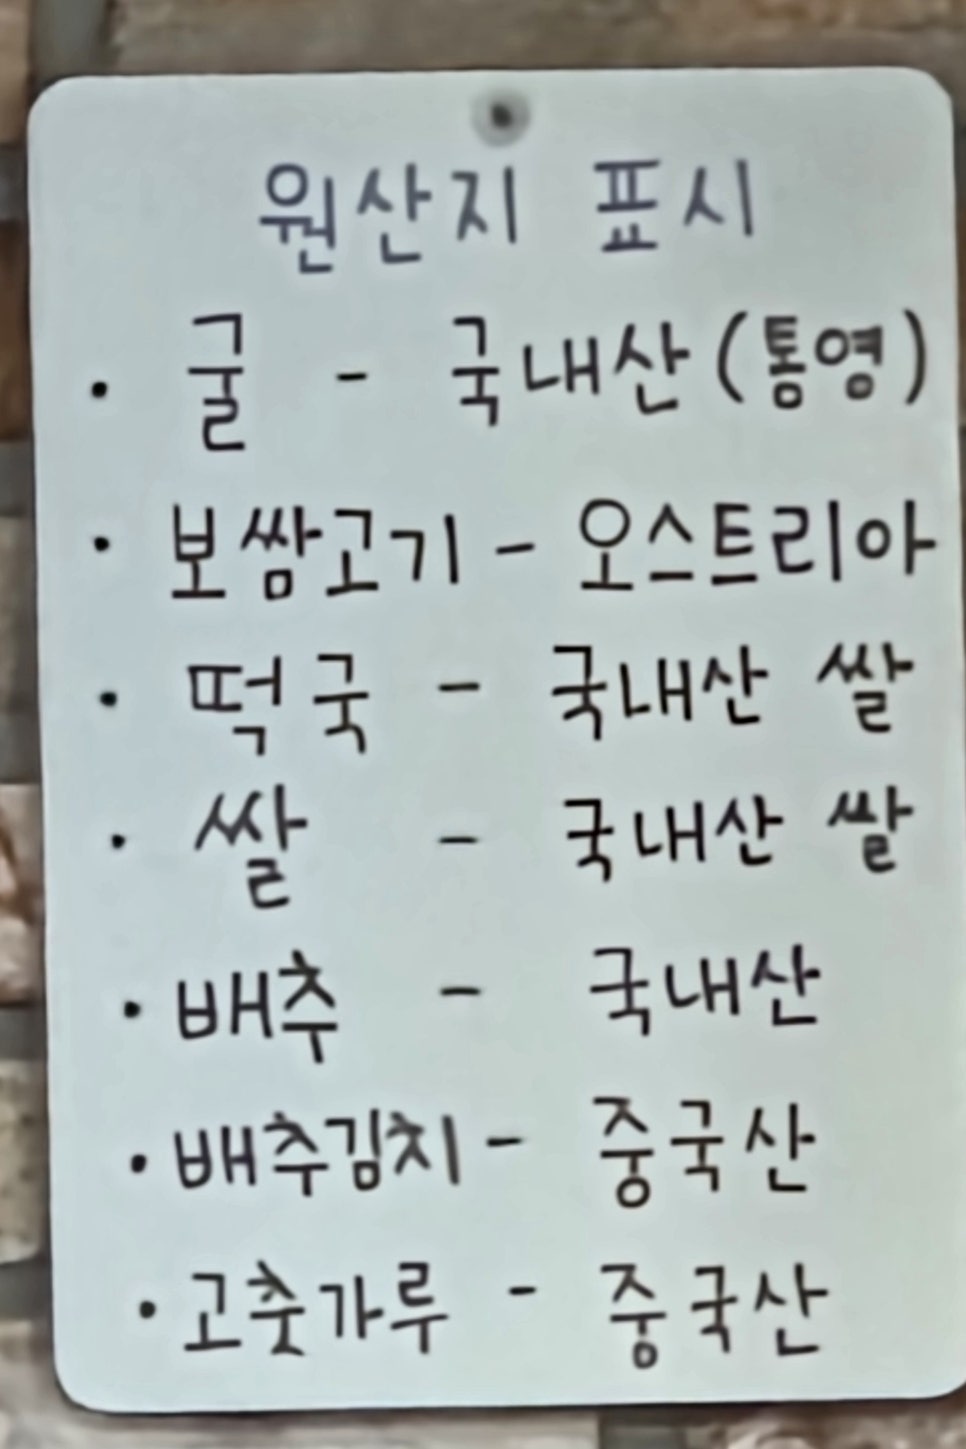 원산지 표시
· 굴 - 국내산(통영)
· 보쌈고기 - 오스트리아
· 떡국 - 국내산 쌀
· 쌀 - 국내산 쌀
· 배추 - 국내산
· 배추김치 - 중국산
· 고춧가루 - 중국산